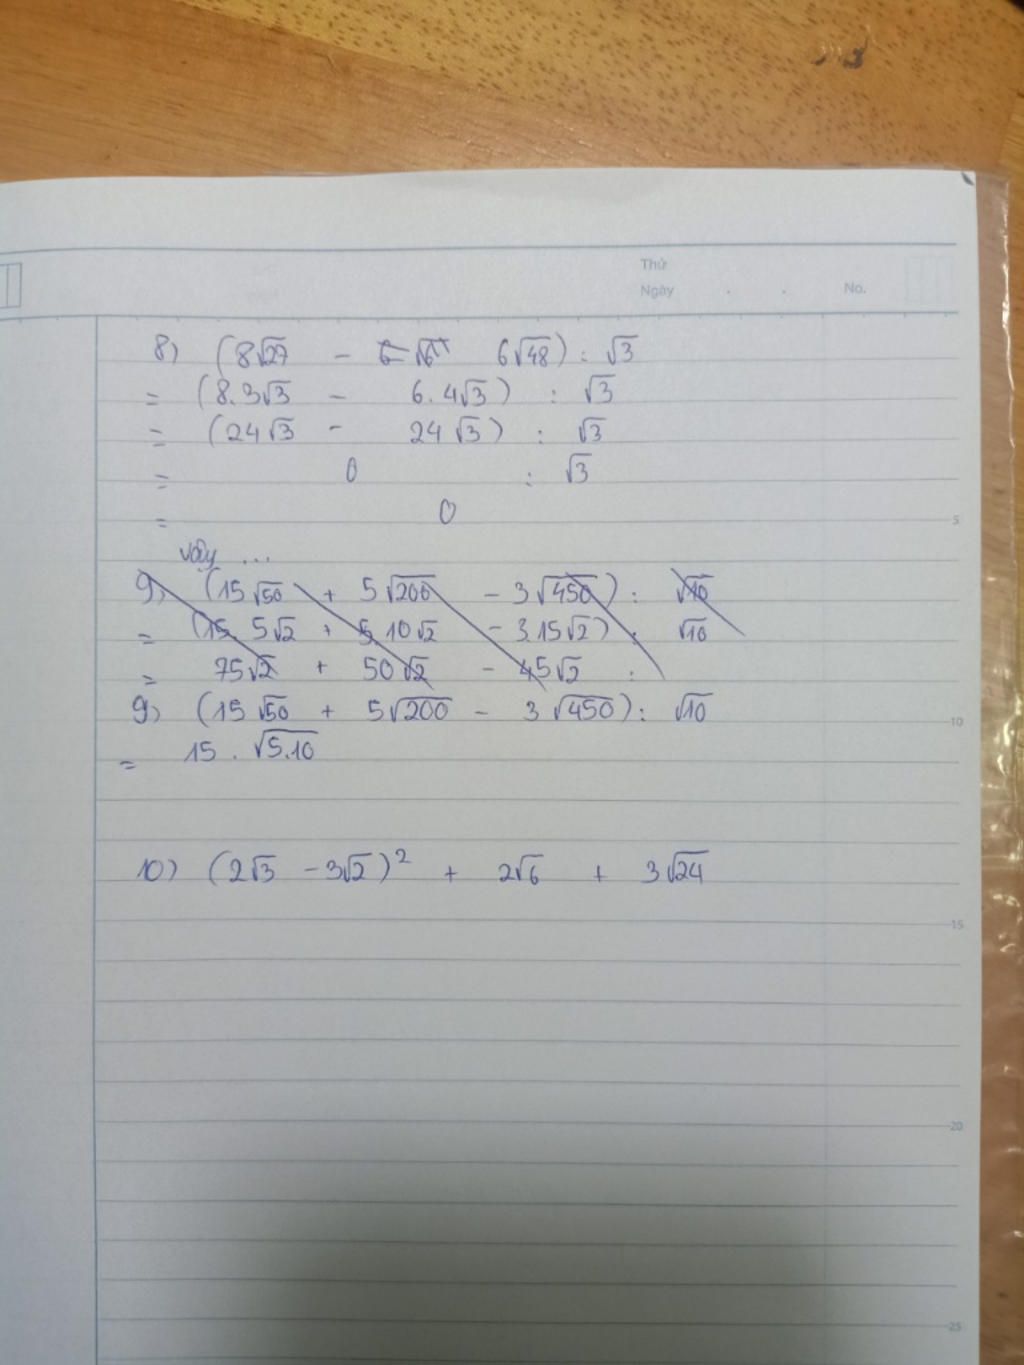 Thứ
Ngày . . No.
8) (8√27 - 6√48) : √3
= (8.3√3 - 6.4√3) : √3
= (24√3 - 24√3) : √3
= 0 : √3
= 0
5
vậy ...
9) (15√50 + 5√200 - 3√450) : √10
= (15.5√2 + 5.10√2 - 3.15√2) : √10
= 75√2 + 50√2 - 45√2 :
9) (15√50 + 5√200 - 3√450) : √10
10
= 15 . √5.10
10) (2√3 - 3√2)² + 2√6 + 3√24
15
20
25